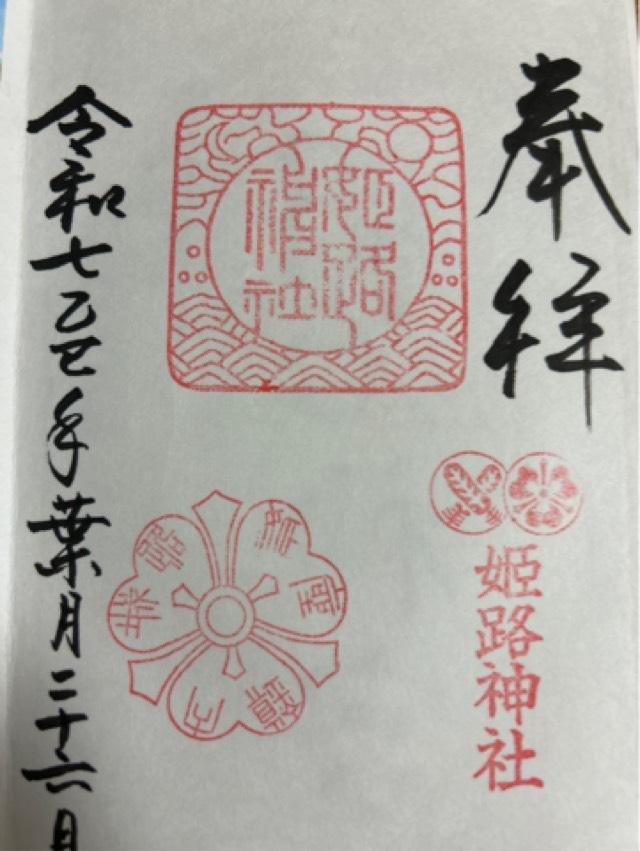 奉拝
姫路神社
姫路神社
令和七乙巳年葉月二十六日